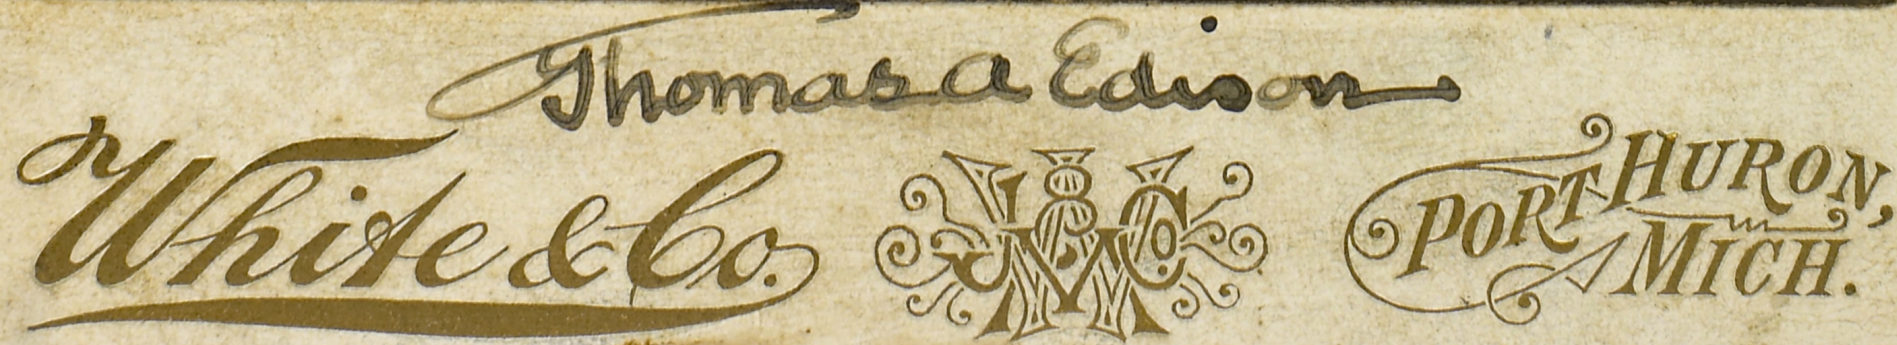 Thomas A Edison
White & Co.
PORT HURON,
MICH.